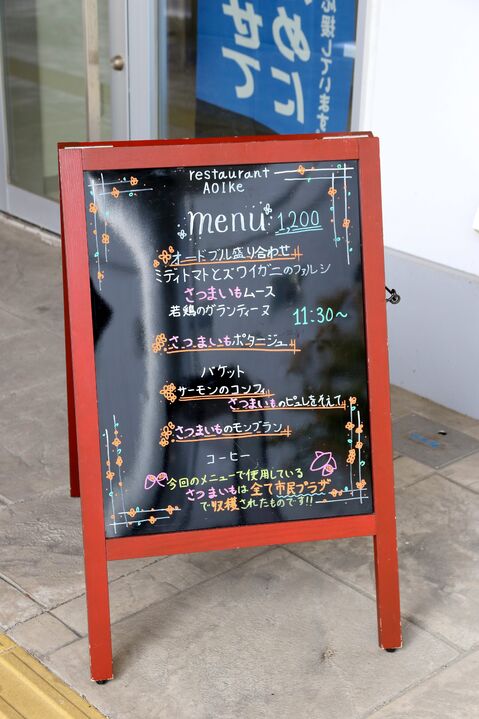 応援しています。
めに
せて
restaurant
AOIke
menu 1,200
オードブル盛り合わせ
ミディトマトとズワイガニのファルシ
さつまいもムース
若鶏のガランティーヌ
11:30～
さつまいもポタージュ
バゲット
サーモンのコンフィ
さつまいものピュレを添えて
さつまいものモンブラン
コーヒー
今回のメニューで使用している
さつまいもは全て市民プラザ
で収穫されたものです!!